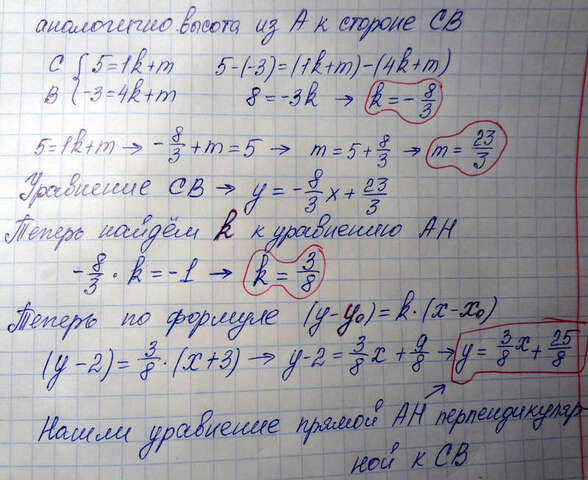 аналогично высота из A к стороне CB
C { 5=1k+m 5-(-3)=(1k+m)-(4k+m)
B { -3=4k+m 8=-3k → k=-8/3
5=1k+m → -8/3+m=5 → m=5+8/3 → m=23/3
Уравнение CB → y=-8/3x+23/3
Теперь найдём k к уравнению AH
-8/3·k=-1 → k=3/8
Теперь по формуле (y-y₀)=k·(x-x₀)
(y-2)=3/8·(x+3) → y-2=3/8x+9/8 → y=3/8x+25/8
Нашли уравнение прямой AH перпендикуляр-
ной к CB